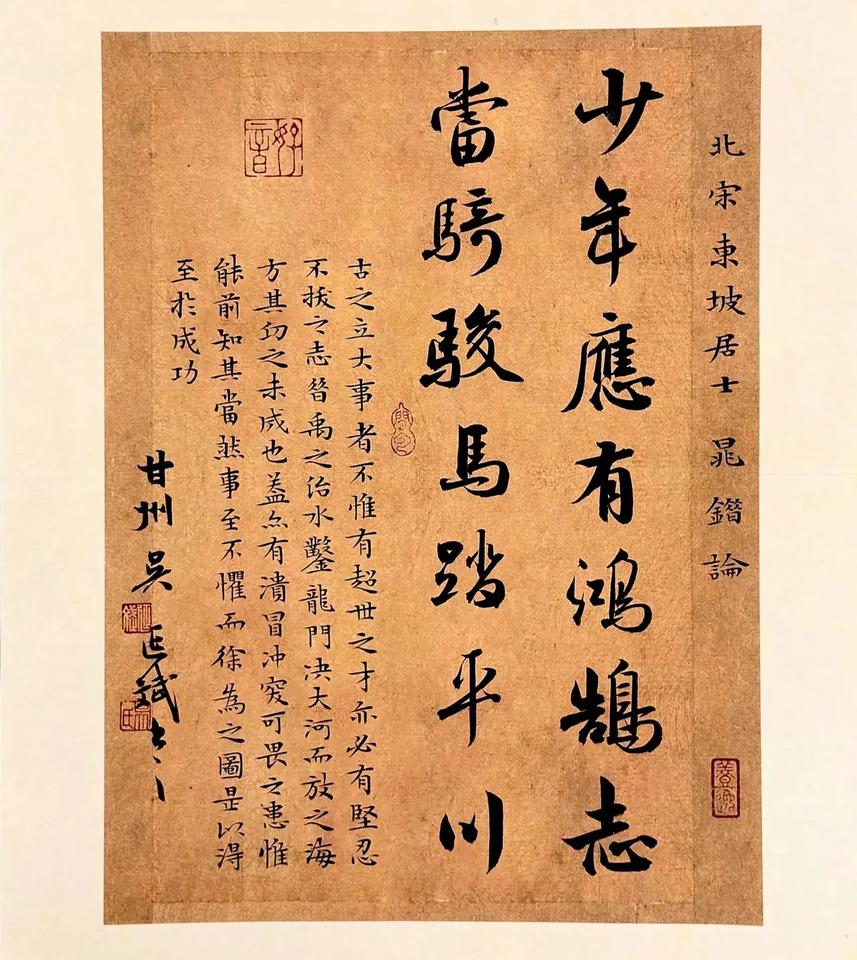 北宋東坡居士 晁錯論
少年應有鴻鵠志
當騎駿馬踏平川
古之立大事者不惟有超世之才亦必有堅忍
不拔之志昔禹之治水鑿龍門決大河而放之海
方其功之未成也蓋亦有潰冒冲突可畏之患惟
能前知其當然事至不懼而徐為之圖是以得
至於成功
甘州吳